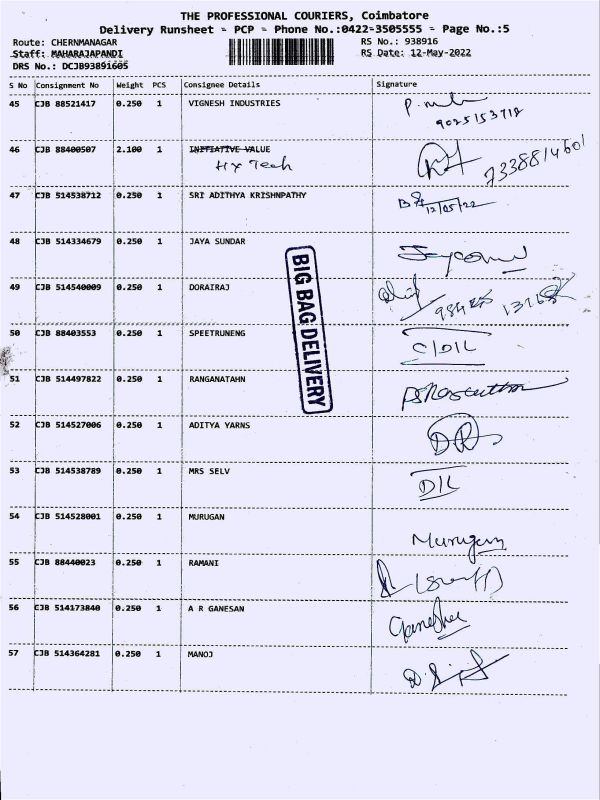 THE PROFESSIONAL COURIERS, Coimbatore
Delivery Runsheet - PCP - Phone No.:0422-3505555 - Page No.:5
Route: CHERNMANAGAR RS No.: 938916
Staff: MAHARAJAPANDI RS Date: 12-May-2022
DRS No.: DCJB93891605
S No Consignment No Weight PCS Consignee Details Signature
45 CJB 88521417 0.250 1 VIGNESH INDUSTRIES
9025153718
46 CJB 88400507 2.100 1 INITIATIVE VALUE
Hx Tech 7338814601
47 CJB 514538712 0.250 1 SRI ADITHYA KRISHNPATHY
12/05/22
48 CJB 514334679 0.250 1 JAYA SUNDAR
49 CJB 514540009 0.250 1 DORAIRAJ
50 CJB 88403553 0.250 1 SPEETRUNENG C/DIL
51 CJB 514497822 0.250 1 RANGANATAHN
52 CJB 514527006 0.250 1 ADITYA YARNS
53 CJB 514538789 0.250 1 MRS SELV D/L
54 CJB 514528001 0.250 1 MURUGAN
Murugan
55 CJB 88440023 0.250 1 RAMANI
56 CJB 514173840 0.250 1 A R GANESAN
57 CJB 514364281 0.250 1 MANOJ
BIG BAG DELIVERY